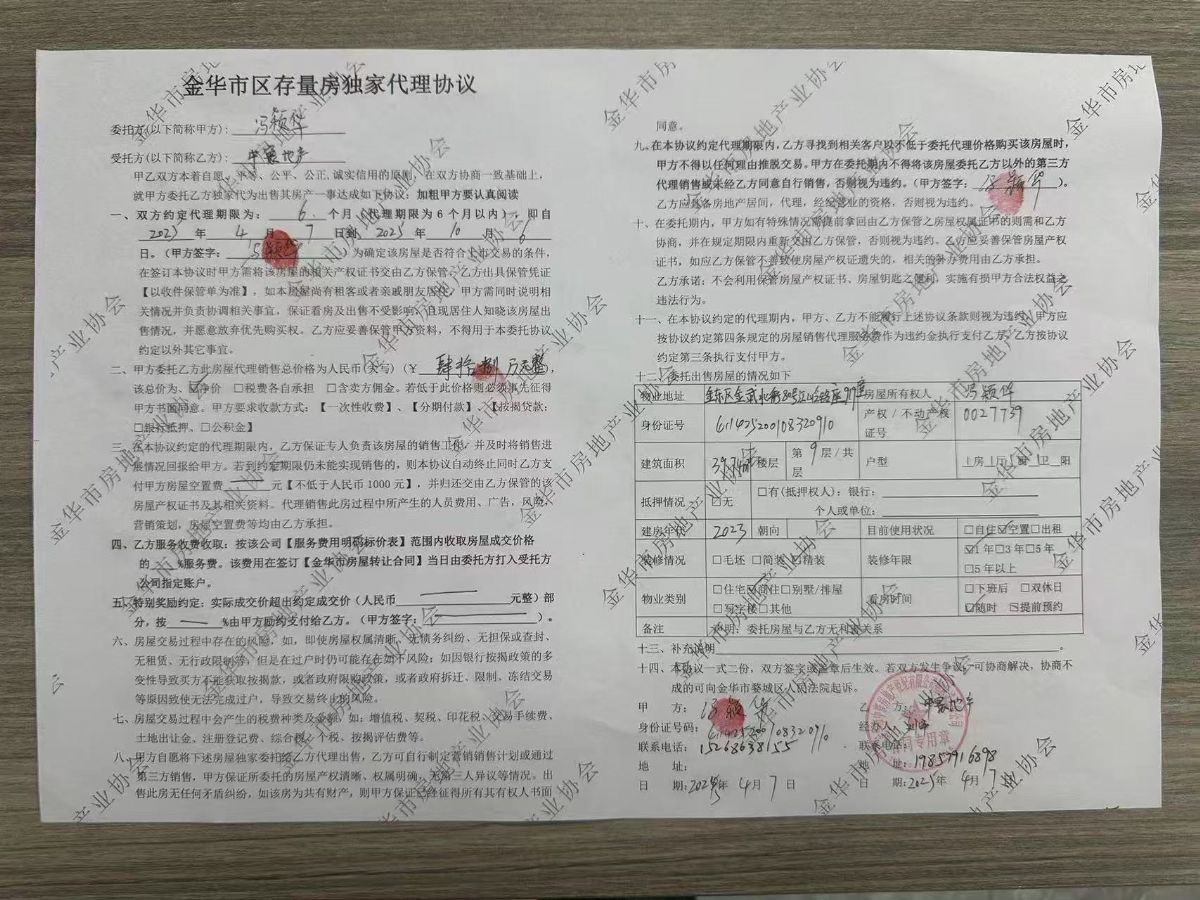 金华市区存量房独家代理协议
委托方(以下简称甲方)：冯颖华
受托方(以下简称乙方)：中宸地产
甲乙双方本着自愿、平等、公平、公正、诚实信用的原则，在双方协商一致基础上，
就甲方委托乙方独家代为出售其房产一事达成如下协议：加粗甲方要认真阅读
一、双方约定代理期限为： 6 个月（代理期限为 6 个月以内），即自
2025 年 4 月 7 日到 2025 年 10 月 6
日。（甲方签字：冯颖华 ）为确定该房屋是否符合上市交易的条件，
在签订本协议时甲方需将该房屋的相关产权证书交由乙方保管，乙方出具保管凭证
【以收件保管单为准】，如本房屋尚有租客或者亲戚朋友居住，甲方需同时说明相
关情况并负责协调相关事宜，保证看房及出售不受影响，且现居住人知晓该房屋出
售情况，并愿意放弃优先购买权。乙方应妥善保管甲方资料，不得用于本委托协议
约定以外其它事宜。
二、甲方委托乙方此房屋代理销售总价格为人民币(大写)（¥ 肆拾捌万元整 ），
该总价为、☑净价 □税费各自承担 □含卖方佣金。若低于此价格则必须事先征得
甲方书面同意。甲方要求收款方式：【一次性收费】、【分期付款】、【按揭贷款：
□银行抵押、□公积金】
三、在本协议约定的代理期限内，乙方保证专人负责该房屋的销售工作，并及时将销售进
展情况回报给甲方。若到约定期限仍未能实现销售的，则本协议自动终止同时乙方支
付甲方房屋空置费 — 元【不低于人民币 1000 元】，并归还交由乙方保管的该
房屋产权证书及其相关资料。代理销售此房过程中所产生的人员费用、广告，风险，
营销策划，房屋空置费等均由乙方承担。
四、乙方服务收费收取：按该公司【服务费用明码标价表】范围内收取房屋成交价格
的 %服务费。该费用在签订【金华市房屋转让合同】当日由委托方打入受托方
公司指定账户。
五、特别奖励约定：实际成交价超出约定成交价（人民币 — 元整）部
分，按 — %由甲方励约支付给乙方。（甲方签字： — ）。
六、房屋交易过程中存在的风险，如，即使房屋权属清晰、无债务纠纷、无担保或查封、
无租赁、无行政限制等，但是在过户时仍可能存在如下风险：如因银行按揭政策的多
变性导致买方不能获取按揭款，或者政府限购政策，或者政府拆迁、限制、冻结交易
等原因致使无法完成过户，导致交易终止的风险。
七、房屋交易过程中会产生的税费种类及金额，如：增值税、契税、印花税、交易手续费、
土地出让金、注册登记费、综合税、个税、按揭评估费等。
八、甲方自愿将下述房屋独家委托给乙方代理出售，乙方可自行制定营销销售计划或通过
第三方销售，甲方保证所委托的房屋产权清晰、权属明确、无第三人异议等情况。出
售此房无任何矛盾纠纷，如该房为共有财产，则甲方保证已经征得所有其有权人书面
同意。
九、在本协议约定代理期限内，乙方寻找到相关客户以不低于委托代理价格购买该房屋时，
甲方不得以任何理由推脱交易。甲方在委托期内不得将该房屋委托乙方以外的第三方
代理销售或未经乙方同意自行销售，否则视为违约。（甲方签字：冯颖华 ）。
乙方应具备房地产居间，代理，经纪营业的资格、否则视为违约。
十、在委托期内，甲方如有特殊情况需提前拿回由乙方保管之房屋权属证书的则需和乙方
协商，并在规定期限内重新交由乙方保管，否则视为违约。乙方应妥善保管房屋产权
证书，如应乙方保管不善致使房屋产权证遗失的，相关的补办费用由乙方承担。
乙方承诺：不会利用保管房屋产权证书、房屋钥匙之便利，实施有损甲方合法权益之
违法行为。
十一、在本协议约定的代理期内，甲方、乙方不能履行上述协议条款则视为违约，甲方应
按协议约定第四条规定的房屋销售代理服务费作为违约金执行支付乙方，乙方按协议
约定第三条执行支付甲方。
十二、委托出售房屋的情况如下
物业地址 房屋所有权人 冯颖华
身份证号 611425200108320910 产权/不动产权证号 0027739
建筑面积 39.74㎡ 楼层 第 9 层/共 层 户型 1房1厅 厨 卫 阳
抵押情况 ☑无 □有(抵押权人)：银行：
个人或单位：
建房年份 2023 朝向 目前使用状况 □自住☑空置□出租
装修情况 □毛坯 □简装 ☑精装 装修年限 ☑1年□3年□5年
□5年以上
物业类别 □住宅☑商住□别墅/排屋 看房时间 □下班后 □双休日
□写字楼□其他 ☑随时 ☑提前预约
备注 声明：委托房屋与乙方无利害关系
十三、补充说明
十四、本协议一式二份，双方签字或盖章后生效。若双方发生争议，可协商解决，协商不
成的可向金华市婺城区人民法院起诉。
甲 方：冯颖华 乙 方：中宸地产
身份证号码：611425200108320910 经办人：
联系电话：15268638155 联系电话：
地 址： 地 址：19857916898
日 期：2025年 4月 7 日 日 期：2025年 4月 7
合同专用章
金华市房地产业协会